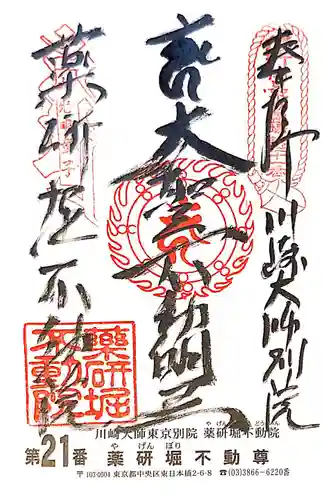 奉拝 川崎大師別院
大聖不動明王
薬研堀不動院
薬研堀
不動院
や げん ぼり ふ どう いん
川崎大師東京別院 薬研堀不動院
や げん ぼり
第21番 薬研堀不動尊
〒103-0004 東京都中央区東日本橋2-6-8 ☎(03)3866-6220番